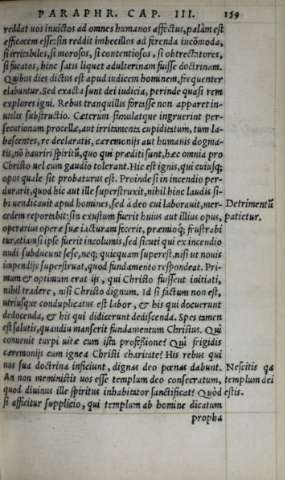 PARAPHR. CAP. III. 159
reddat uos inuictos ad omnes humanos affectus, palàm est
efficacem esse: sin reddit imbecillos ad ferenda incōmoda,
si irritabiles, si morosos, si contentiosos, si obtrectatores,
si fucatos, hinc satis liquet adulterinam fuisse doctrinam.
Quibus dies dictus est apud iudicem hominem, frequenter
elabuntur. Sed exacta sunt dei iudicia, perinde quasi rem
explores igni. Rebus tranquillis fortasse non apparet in-
utilis substructio. Cæterum simulatque ingruerint per-
secutionum procellæ, aut irritamenta cupiditatum, tum la-
bascentes, re declaratis, cæremonijs aut humanis dogma-
tis, nō hauriri spiritū, quo qui præditi sunt, hæc omnia pro
Christo uel cum gaudio tolerant. Hic est ignis, qui cuiusq;
opus quale sit probaturus est. Proinde si in incendio per-
durarit, quod hic aut ille superstruxit, nihil hinc laudis si-
bi uendicauit apud homines, sed à deo cui laborauit, mer-
cedem reportabit: sin exustum fuerit huius aut illius opus,
operarius operæ suæ iacturam fecerit, præmioq; frustrabi
tur, etiamsi ipse fuerit incolumis, sed sicuti qui ex incendio
nudi subducunt sese, neq; quicquam superest, nisi ut nouis
impendijs superstruat, quod fundamento respondeat. Pri-
mum & optimum erat ijs, qui Christo fuissent initiati,
nihil tradere, nisi Christo dignum. Id si factum non est,
utriusque conduplicatus est labor, & his qui docuerunt
dedocenda, & his qui didicerunt dediscenda. Spes tamen
est salutis, quandiu manserit fundamentum Christus. Quî
conuenit turpi uitæ cum ista professione? Quî frigidis
cæremonijs cum ignea Christi charitate? His rebus qui
nos sua doctrina inficiunt, dignas deo pœnas dabunt.
An non meministis uos esse templum deo consecratum,
quod diuinus ille spiritus inhabitator sanctificat? Quòd
si afficitur supplicio, qui templum ab homine dicatum
propha
Detrimentū
patietur.
Nescitis qa
templum dei
estis.